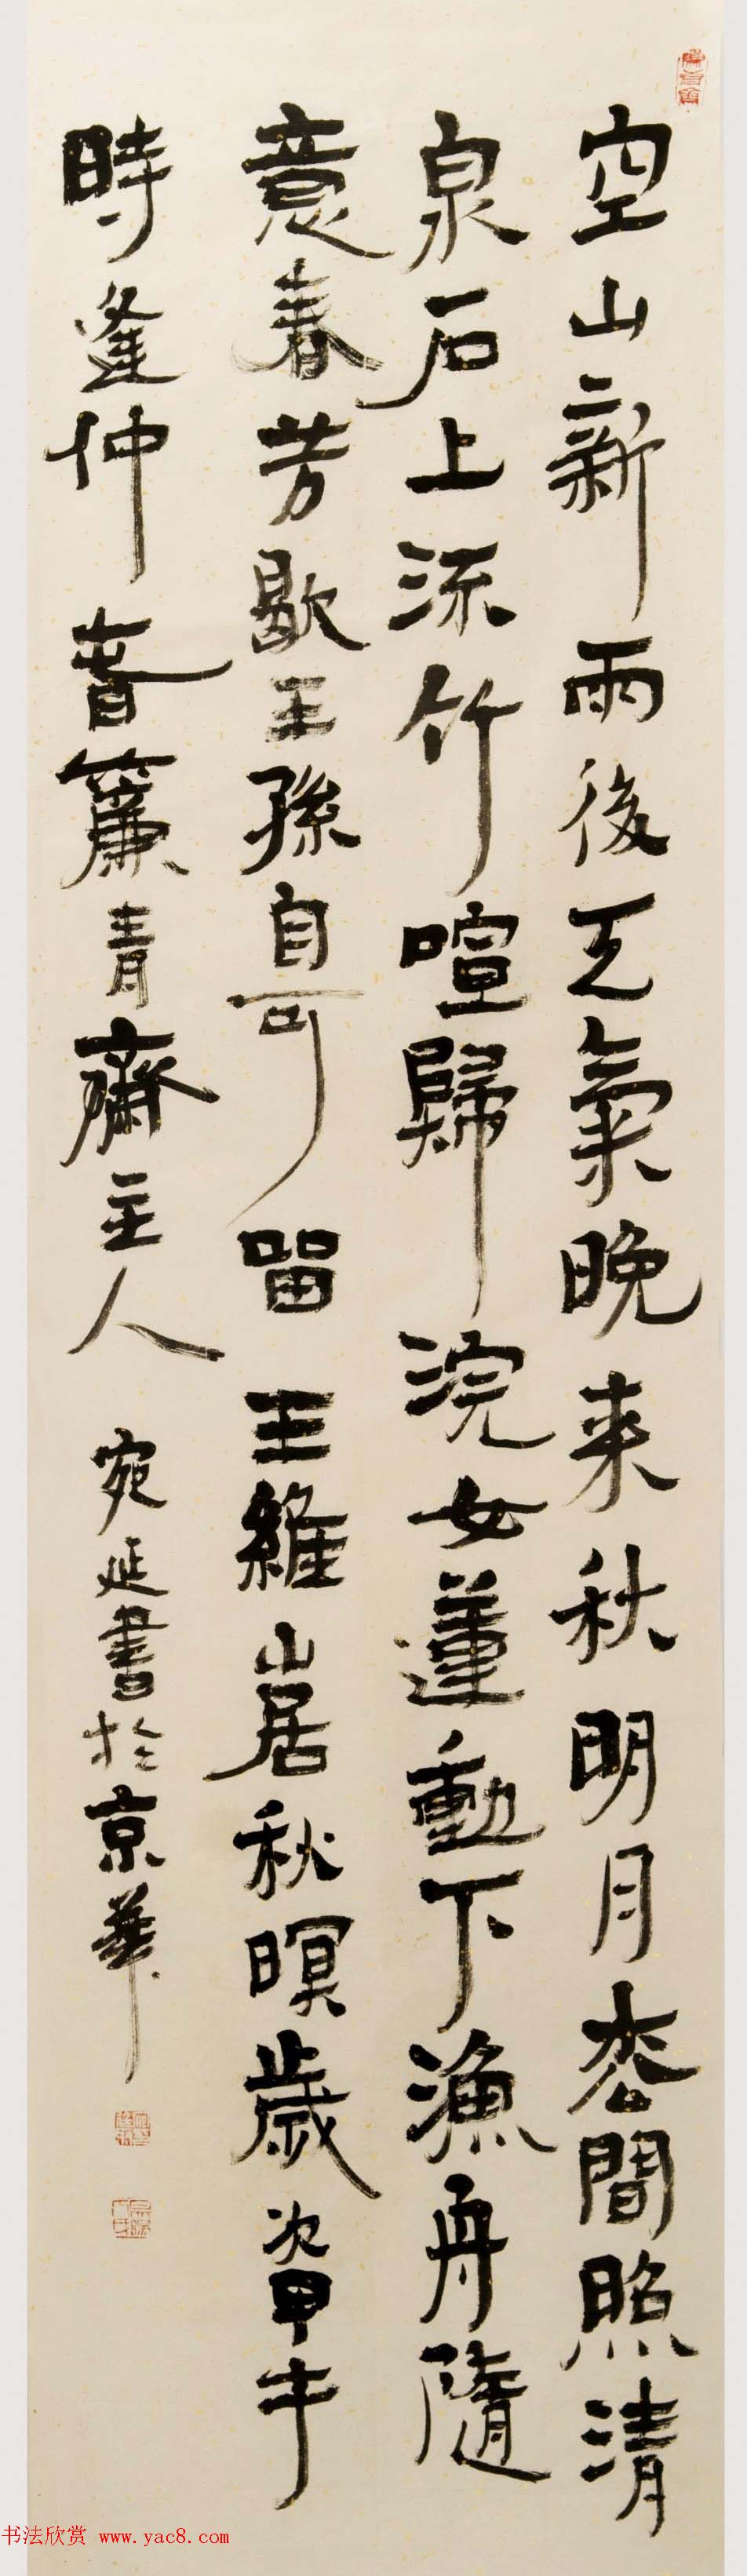 空山新雨後天氣晚来秋明月枩間照清
泉石上流竹喧歸浣女蓮動下漁舟隨
意春芳歇王孫自可留 王維山居秋暝歲次甲午
時逢仲春簾青齋主人 宛延書於京華
书法欣赏 www.yac8.com